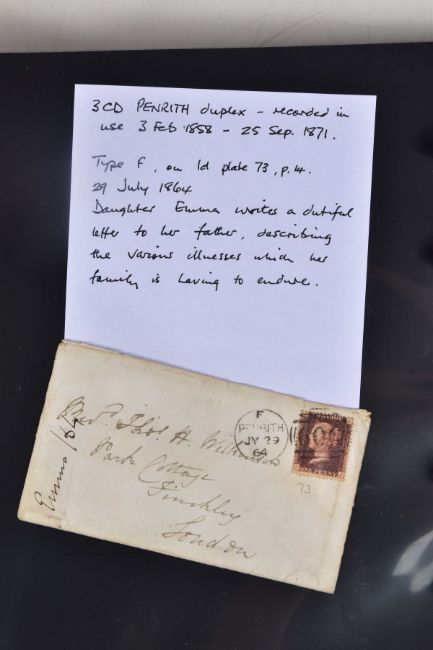 3CD PENRITH duplex - recorded in
use 3 Feb 1858 - 25 Sep. 1871.
Type F, on 1d plate 73, p.14.
29 July 1864
Daughter Emma writes a dutiful
letter to her father, describing
the various illnesses which her
family is having to endure.
F
PENRITH
JY 29
64
ONE PENNY
73
Revd. Thos H.
Park Cottage
Finchley
London
Emma